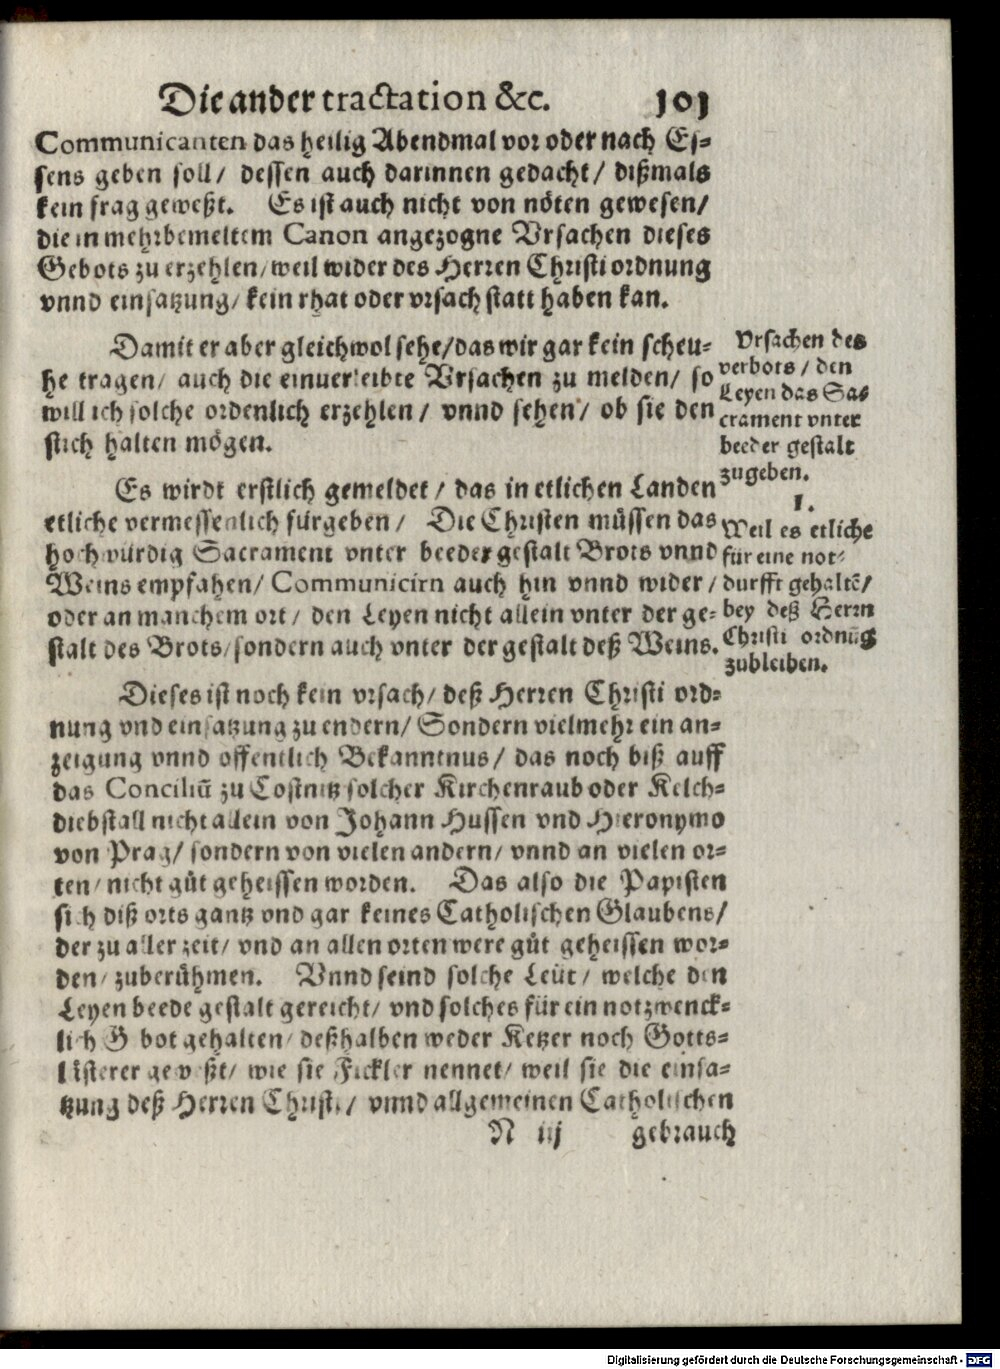 Die ander tractation &c. 101
Communicanten das heilig Abendmal vor oder nach Es⸗
sens geben soll/ dessen auch darinnen gedacht/ dißmals
kein frag geweßt. Es ist auch nicht von nöten gewesen/
die in mehrbemeltem Canon angezogne Vrsachen dieses
Gebots zu erzehlen/ weil wider des Herren Christi ordnung
vnnd einsatzung/ kein rhat oder vrsach statt haben kan.
Damit er aber gleichwol sehe/ das wir gar kein scheu⸗
he tragen/ auch die einuerleibte Vrsachen zu melden/ so
will ich solche ordenlich erzehlen/ vnnd sehen/ ob sie den
stich halten mögen.
Vrsachen des
verbots/ den
Leyen das Sa⸗
crament vnter
beeder gestalt
zugeben.
Es wirdt erstlich gemeldet/ das in etlichen Landen
etliche vermessenlich fürgeben/ Die Christen müssen das
hochwürdig Sacrament vnter beeder gestalt Brots vnnd
Weins empfahen/ Communicirn auch hin vnnd wider/
oder an manchem ort/ den Leyen nicht allein vnter der ge⸗
stalt des Brots/ sondern auch vnter der gestalt deß Weins.
1.
Weil es etliche
für eine not⸗
durfft gehaltē/
bey deß Herrn
Christi ordnūg
zubleiben.
Dieses ist noch kein vrsach/ deß Herren Christi ord⸗
nung vnd einsatzung zu endern/ Sondern vielmehr ein an⸗
zeigung vnnd offentlich Bekanntnus/ das noch biß auff
das Conciliū zu Costnitz solcher Kirchenraub oder Kelch⸗
diebstall nicht allein von Johann Hussen vnd Hieronymo
von Prag/ sondern von vielen andern/ vnnd an vielen or⸗
ten/ nicht gůt geheissen worden. Das also die Papisten
sich diß orts gantz vnd gar keines Catholischen Glaubens/
der zu aller zeit/ vnd an allen orten were gůt geheissen wor⸗
den/ zuberühmen. Vnnd seind solche Leüt/ welche den
Leyen beede gestalt gereicht/ vnd solches für ein notzwenck⸗
lich Gebot gehalten/ deßhalben weder Ketzer noch Gotts⸗
lästerer geweßt/ wie sie Fickler nennet/ weil sie die einsa⸗
tzung deß Herren Christi/ vnnd allgemeinen Catholischen
N iij gebrauch
Digitalisierung gefördert durch die Deutsche Forschungsgemeinschaft - DFG